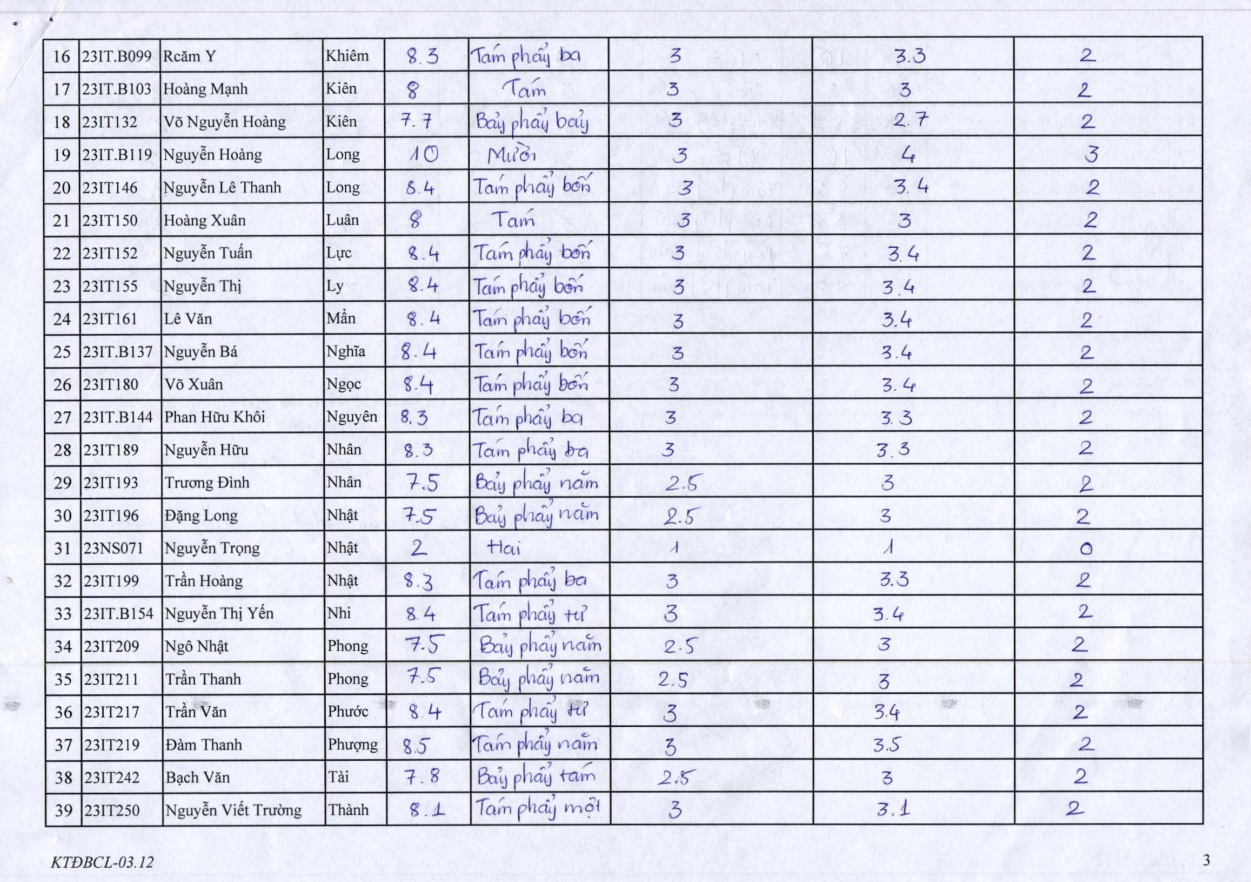 16 23IT.B099 Rcăm Y Khiêm 8.3 Tám phẩy ba 3 3.3 2
17 23IT.B103 Hoàng Mạnh Kiên 8 Tám 3 3 2
18 23IT132 Võ Nguyễn Hoàng Kiên 7.7 Bảy phẩy bảy 3 2.7 2
19 23IT.B119 Nguyễn Hoàng Long 10 Mười 3 4 3
20 23IT146 Nguyễn Lê Thanh Long 8.4 Tám phẩy bốn 3 3.4 2
21 23IT150 Hoàng Xuân Luân 8 Tám 3 3 2
22 23IT152 Nguyễn Tuấn Lực 8.4 Tám phẩy bốn 3 3.4 2
23 23IT155 Nguyễn Thị Ly 8.4 Tám phẩy bốn 3 3.4 2
24 23IT161 Lê Văn Mẩn 8.4 Tám phẩy bốn 3 3.4 2
25 23IT.B137 Nguyễn Bá Nghĩa 8.4 Tám phẩy bốn 3 3.4 2
26 23IT180 Võ Xuân Ngọc 8.4 Tám phẩy bốn 3 3.4 2
27 23IT.B144 Phan Hữu Khôi Nguyên 8.3 Tám phẩy ba 3 3.3 2
28 23IT189 Nguyễn Hữu Nhân 8.3 Tám phẩy ba 3 3.3 2
29 23IT193 Trương Đình Nhân 7.5 Bảy phẩy năm 2.5 3 2
30 23IT196 Đặng Long Nhật 7.5 Bảy phẩy năm 2.5 3 2
31 23NS071 Nguyễn Trọng Nhật 2 Hai 1 1 0
32 23IT199 Trần Hoàng Nhật 8.3 Tám phẩy ba 3 3.3 2
33 23IT.B154 Nguyễn Thị Yến Nhi 8.4 Tám phẩy tư 3 3.4 2
34 23IT209 Ngô Nhật Phong 7.5 Bảy phẩy năm 2.5 3 2
35 23IT211 Trần Thanh Phong 7.5 Bảy phẩy năm 2.5 3 2
36 23IT217 Trần Văn Phước 8.4 Tám phẩy tư 3 3.4 2
37 23IT219 Đàm Thanh Phượng 8.5 Tám phẩy năm 3 3.5 2
38 23IT242 Bạch Văn Tài 7.8 Bảy phẩy tám 2.5 3 2
39 23IT250 Nguyễn Viết Trường Thành 8.1 Tám phẩy một 3 3.1 2
KTĐBCL-03.12 3